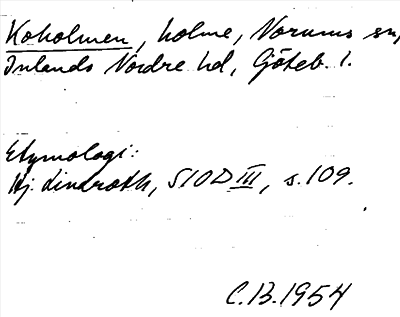 Koholmen, holme, Norums sn,
Inlands Nordre hd, Göteb. l.
Etymologi:
Hj. Lindroth, SIOD III, s. 109.
C.B. 1954